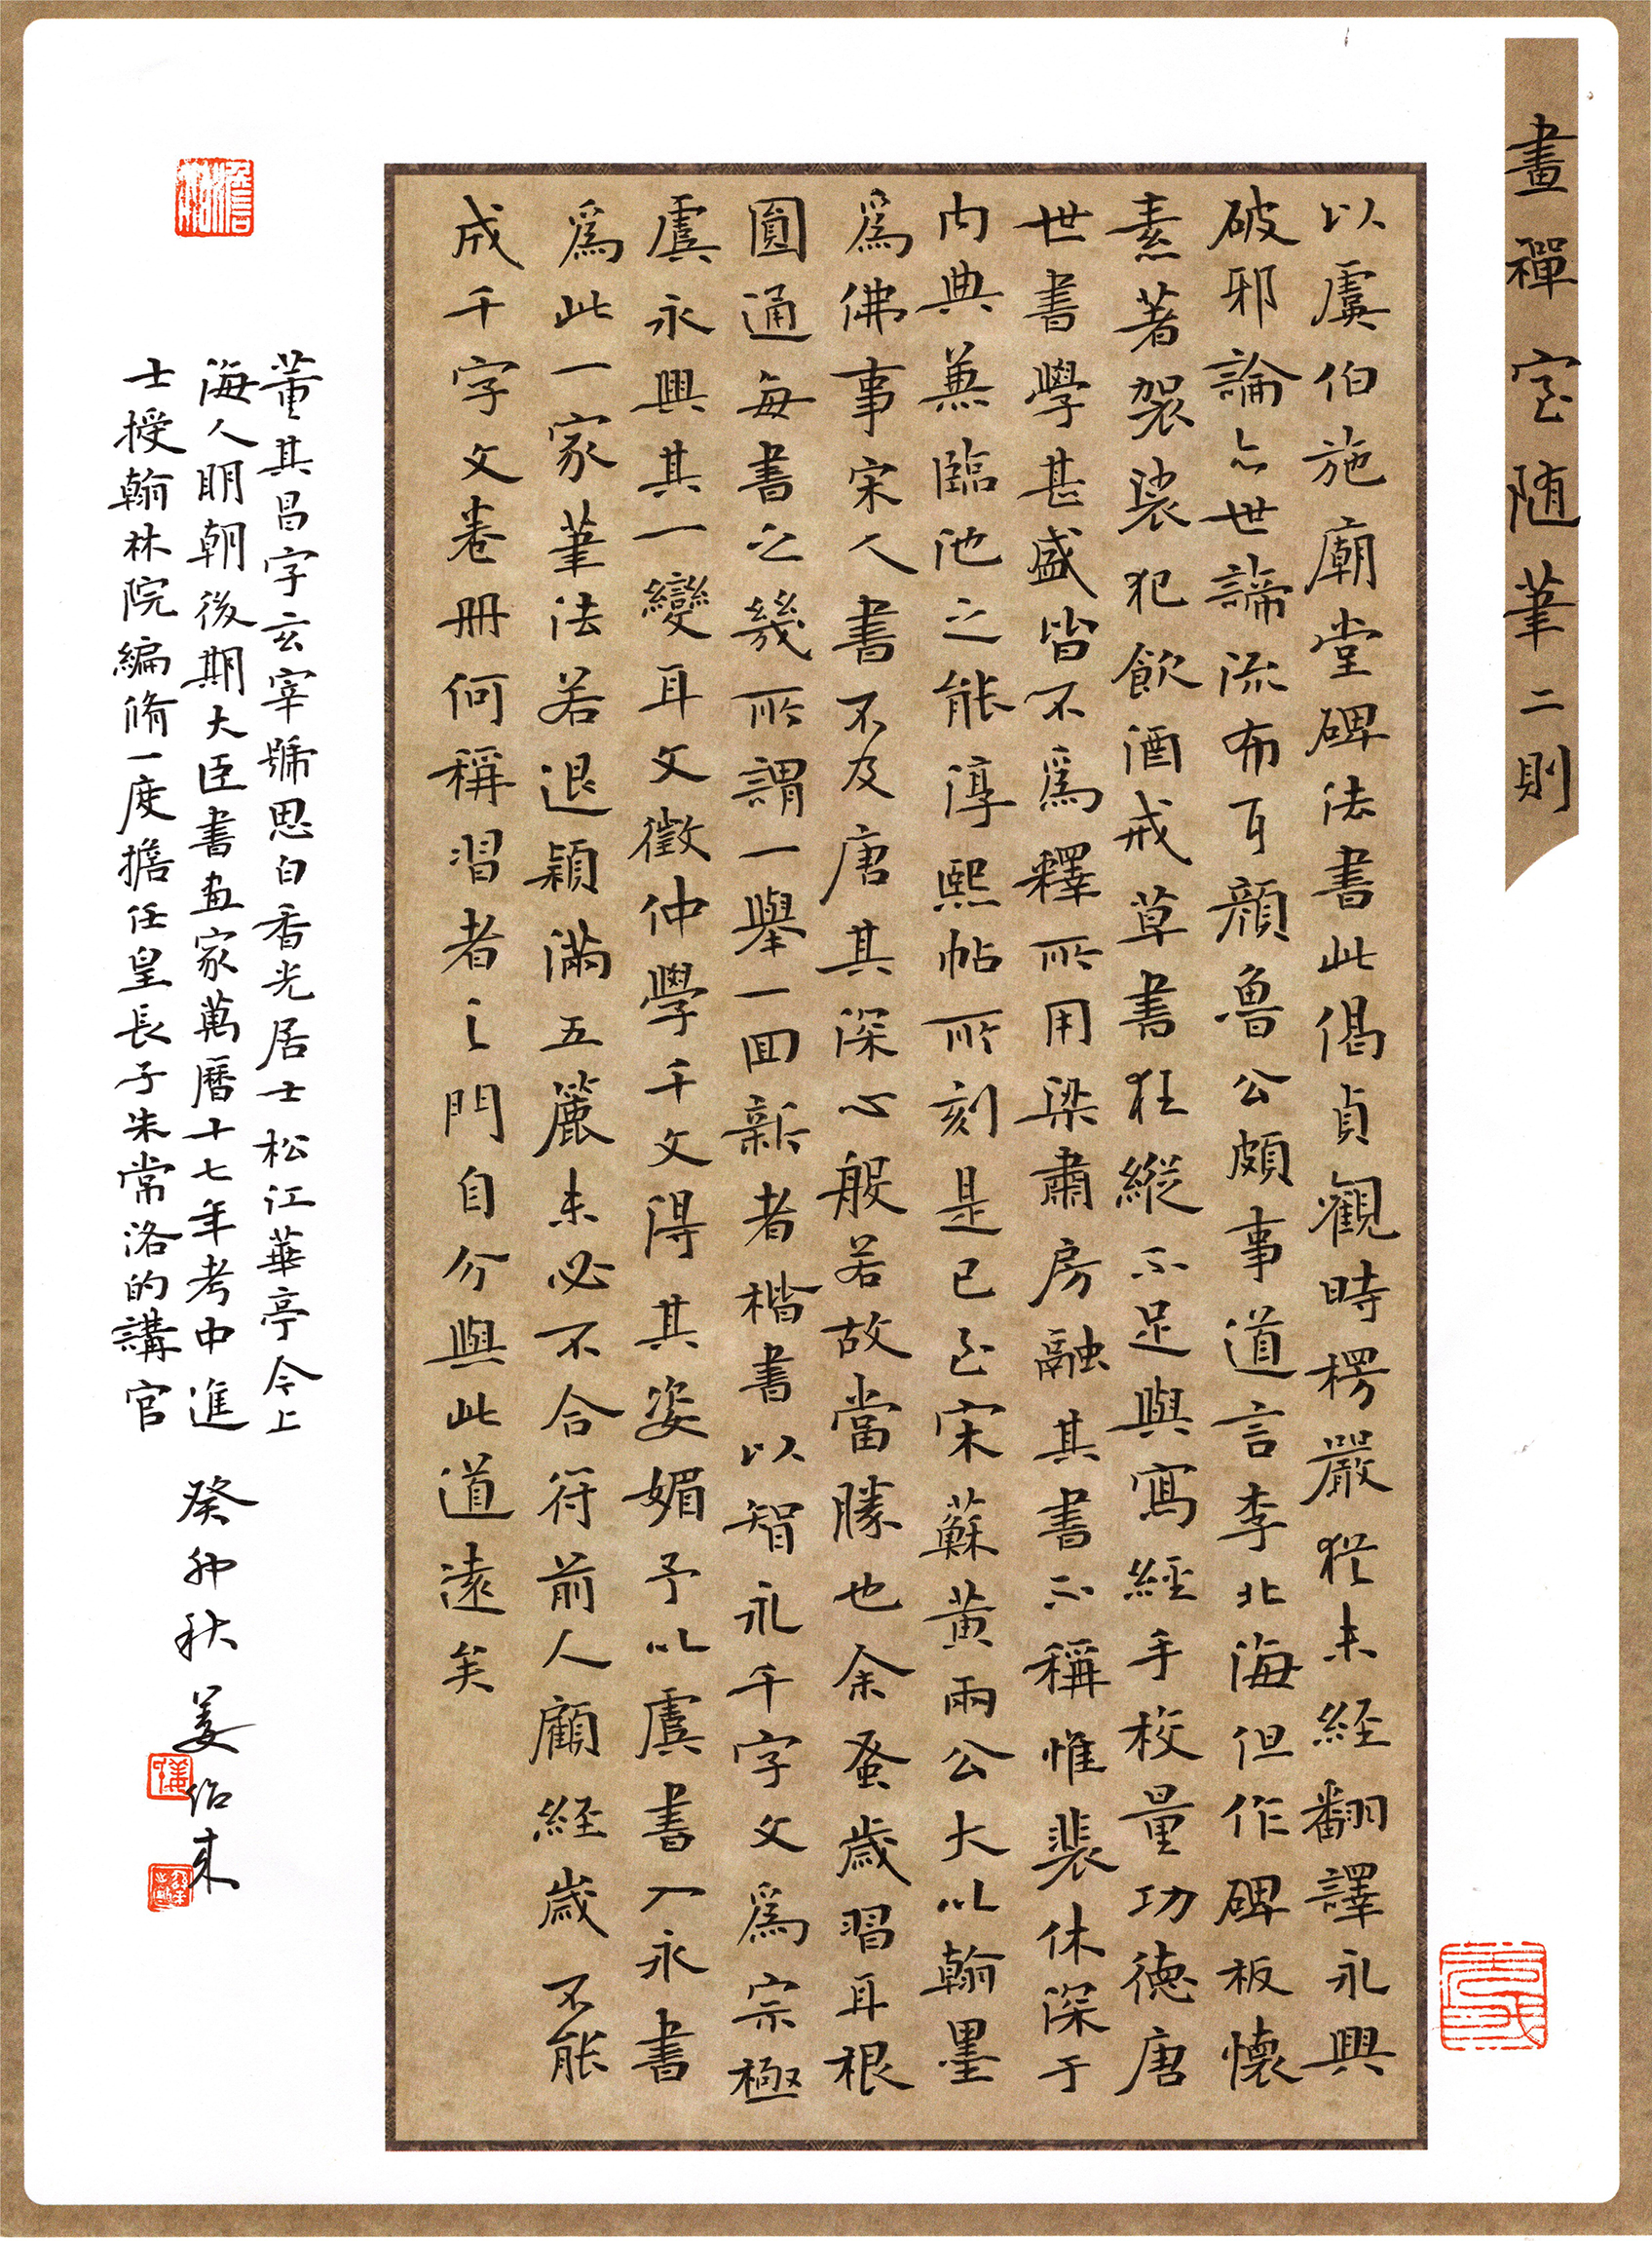 畫禪室随筆二則
以虞伯施廟堂碑法書此偈貞觀時楞嚴猶未經翻譯永興
破邪論亦世諦流布耳顔魯公頗事道言李北海但作碑板懷
素著袈裟犯飲酒戒草書狂縱不足與寫經手校量功德唐
世書學甚盛皆不爲釋所用梁肅房融其書不稱惟裴休深于
内典兼臨池之能淳熙帖所刻是已至宋蘇黄兩公大以翰墨
爲佛事宋人書不及唐其深心般若故當勝也余蚤歲習耳根
圓通每書之幾所謂一舉一回新者楷書以智永千字文爲宗極
虞永興其一變耳文徵仲學千文得其姿媚予以虞書入永書
爲此一家筆法若退穎滿五簏未必不合符前人顧經歲不能
成千字文卷冊何稱習者之門自分與此道遠矣
董其昌字玄宰號思白香光居士松江華亭今上
海人明朝後期大臣書畫家萬曆十七年考中進
士授翰林院編脩一度擔任皇長子朱常洛的講官
癸卯秋姜紹來